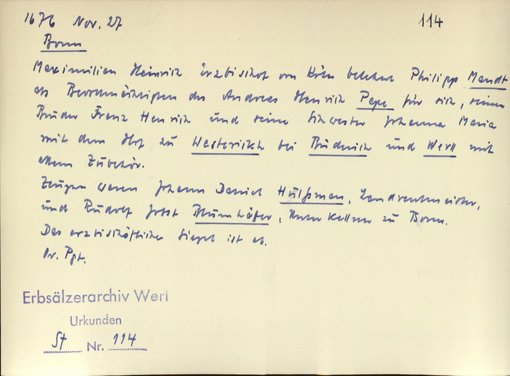 1676 Nov. 27
114
Bonn
Maximilian Heinrich Erzbischof von Köln belehnt Philipp Mendt
als Bevollmächtigten des Andreas Henrich Pape für sich, seinen
Bruder Franz Henrich und seine Schwester Johanna Maria
mit dem Hof zu Westerich bei Büderich und Werl mit
allem Zubehör.
Zeugen waren Johann Daniel Hülsman, Landrentmeister,
und Rudolf Jobst, Unterkellner zu Bonn.
Das erzbischöfliche Siegel ist ab.
Or. Pgt.
Erbsälzerarchiv Werl
Urkunden
St Nr. 114